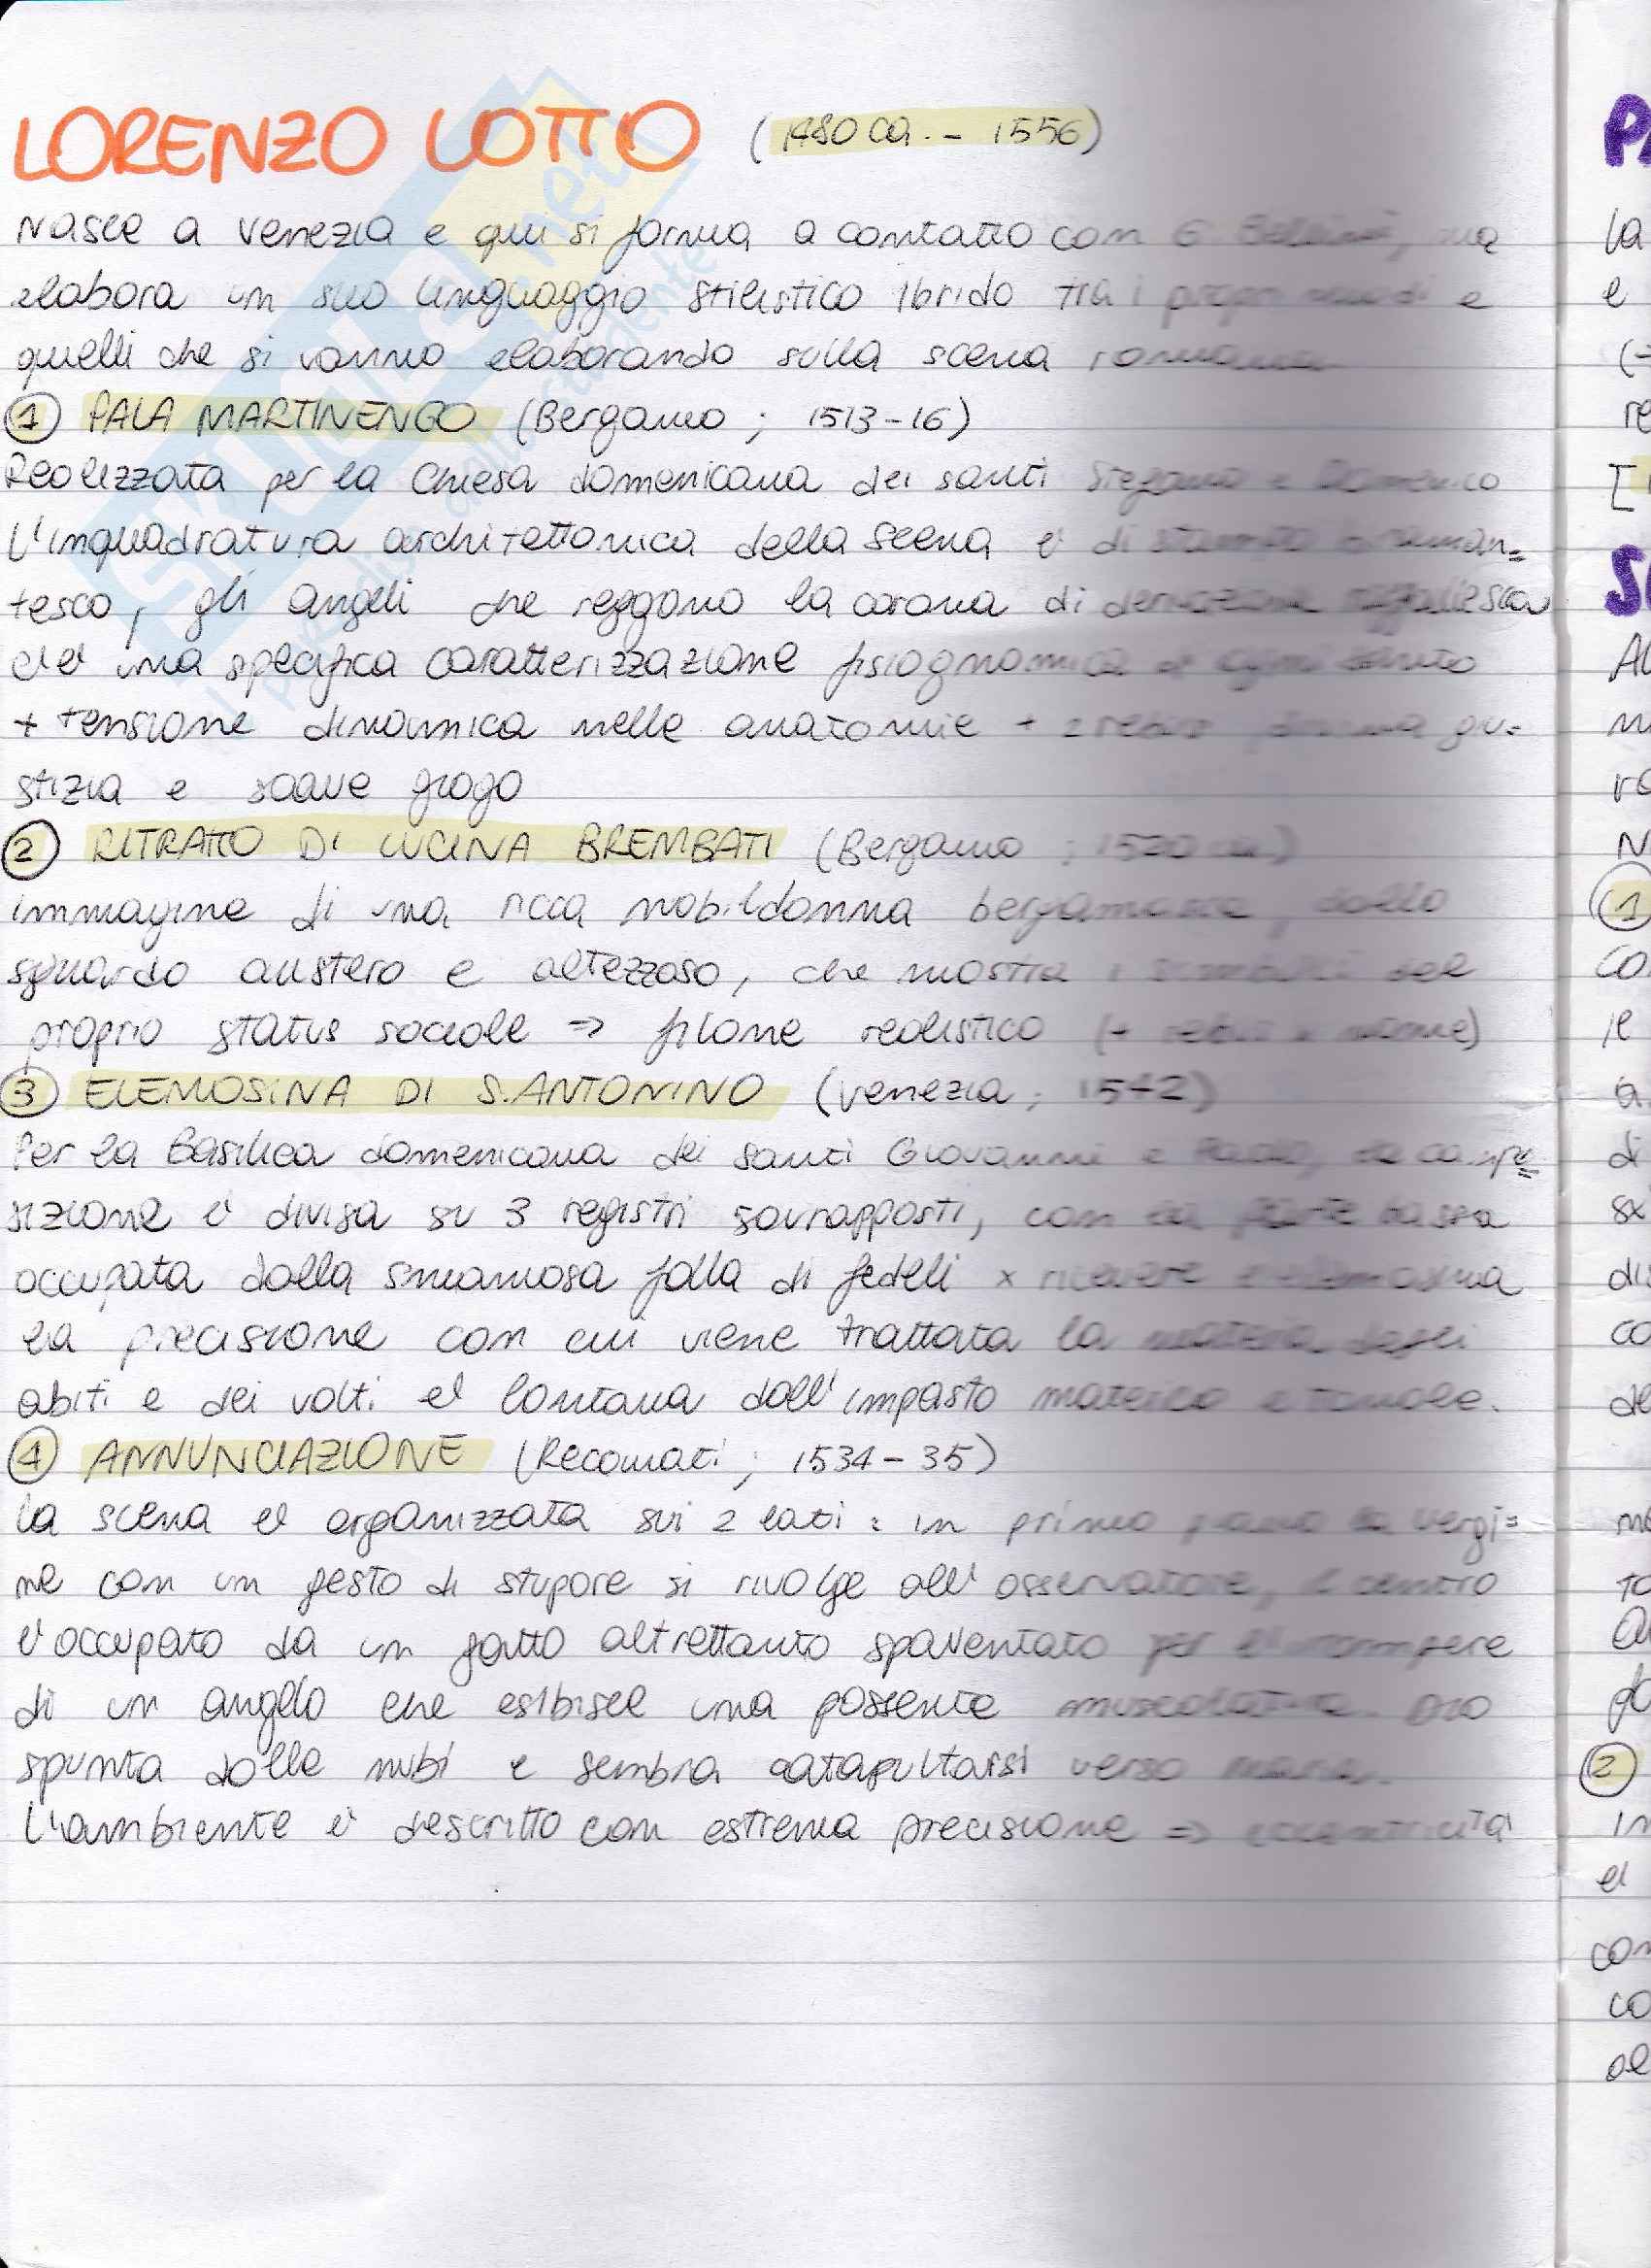 LORENZO LOTTO (1480 ca. - 1556)
Nasce a Venezia e qui si forma a contatto con G. Bellini, ma
elabora un suo linguaggio stilistico ibrido tra i propri e
quelli che si vanno elaborando sulla scena romana
① PALA MARTINENGO (Bergamo ; 1513-16)
Realizzata per la Chiesa domenicana dei santi Stefano e Domenico
L'inquadratura architettonica della scena è di stampo braman=
tesco, gli angeli che reggono la corona di derivazione raffaellesca
c'è una specifica caratterizzazione fisiognomica di ogni santo
+ tensione dinamica nelle anatomie + 2 rebus giu-
stizia e soave giogo
② RITRATTO DI LUCINA BREMBATI (Bergamo ; 1520 ca.)
immagine di una ricca nobildonna bergamasca, dallo
sguardo austero e altezzoso, che mostra i simboli del
proprio status sociale => filone realistico (+ rebus nome)
③ ELEMOSINA DI S. ANTONINO (Venezia ; 1542)
Per la Basilica domenicana dei santi Giovanni e Paolo, la compo=
sizione è divisa su 3 registri sovrapposti, con la parte bassa
occupata dalla smaniosa folla di fedeli x ricevere l'elemosina
la precisione con cui viene trattata la materia degli
abiti e dei volti è lontana dall'impasto materico e tonale.
④ ANNUNCIAZIONE (Recanati ; 1534-35)
la scena è organizzata sui 2 lati : in primo piano la vergi=
ne con un gesto di stupore si rivolge all'osservatore, il centro
è occupato da un gatto altrettanto spaventato per l'irrompere
di un angelo che esibisce una possente muscolatura. Dio
spunta dalle nubi e sembra catapultarsi verso Maria.
L'ambiente è descritto con estrema precisione => eccentricità